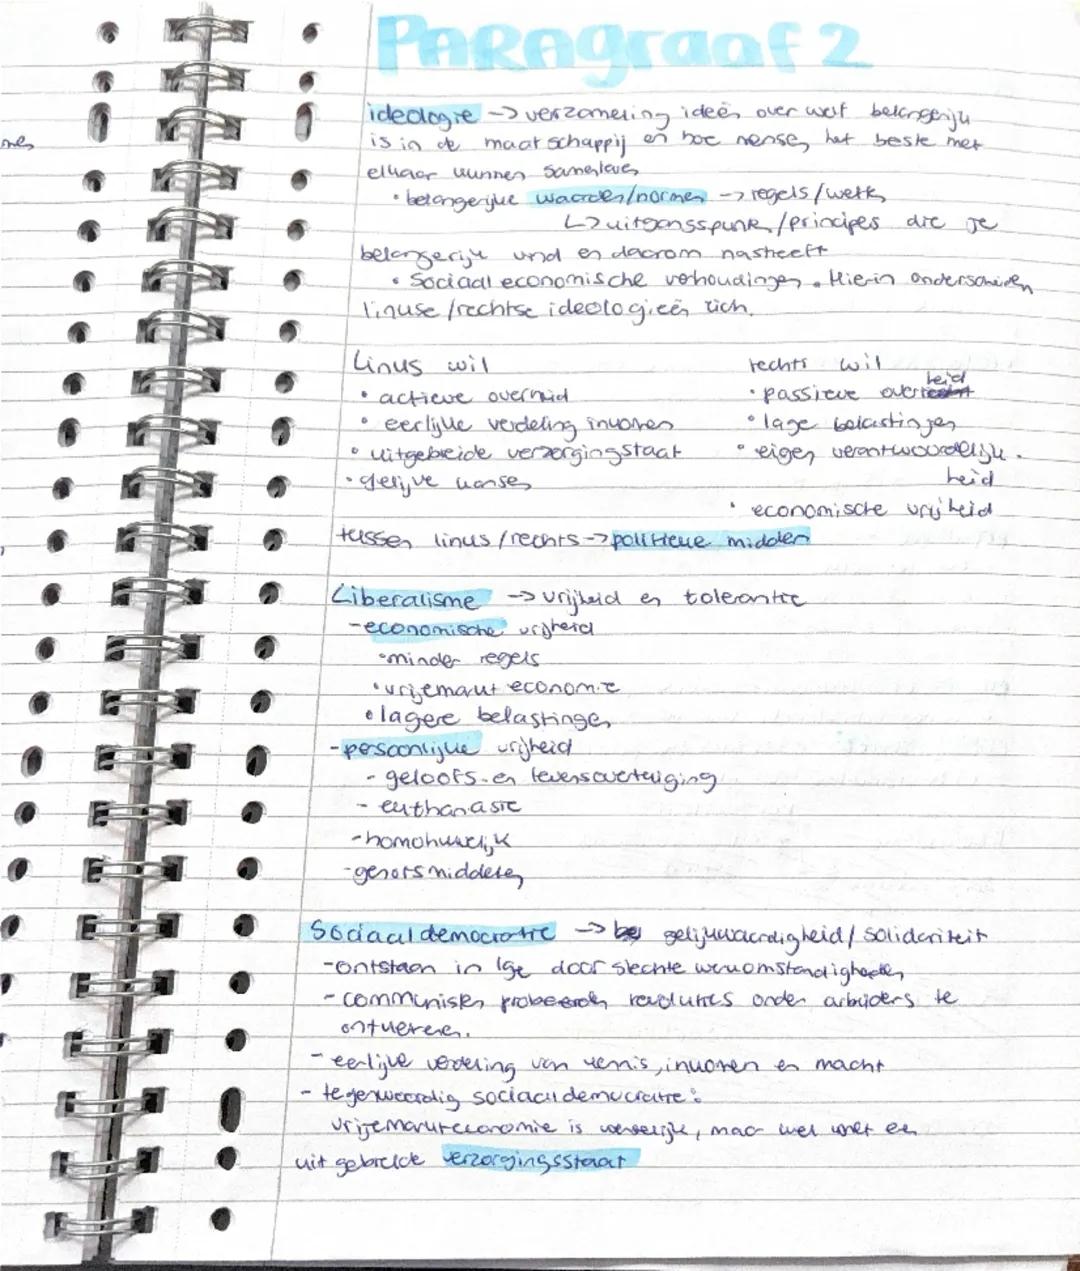 Paragraaf 2
ideologie -> verzameling ideeën over wat belangerijk
is in de maatschappij en hoe mensen het beste met
elkaar kunnen samenleven
• belangerijke waarden/normen -> regels/wetten
↳ uitgangsspunk/principes die je
belangerijk vind en daarom nastreeft
• Sociaal economische verhoudingen. Hierin onderscheiden
linkse/rechtse ideologieën zich.
Links wil
• actieve overheid
• eerlijke verdeling inkomen
• uitgebreide verzorgingstaat
• gelijke kansen
rechts wil
• passieve overheid
• lage belastingen
• eigen verantwoordelijk-
heid
• economische vrijheid
tussen links/rechts -> politieke midden
Liberalisme -> vrijheid en tolerantie
- economische vrijheid
• minder regels
• vrijemarkt economie
• lagere belastingen
- persoonlijke vrijheid
- geloofs- en levensovertuiging
- euthanasie
- homohuwelijk
- genotsmiddelen
Sociaaldemocratie -> gelijkwaardigheid/solidariteit
- ontstaan in 19e door slechte werkomstandigheden
- communisten probeerden revoluties onder arbeiders te
ontketenen.
- eerlijke verdeling van kennis, inkomen en macht
- tegenwoordig sociaaldemocratie:
vrijemarkteconomie is werkelijk, maar wel met een
uitgebreide verzorgingsstaat